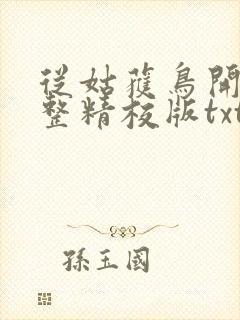 從姑蓷鳥開
整精校版txt
孫玉國